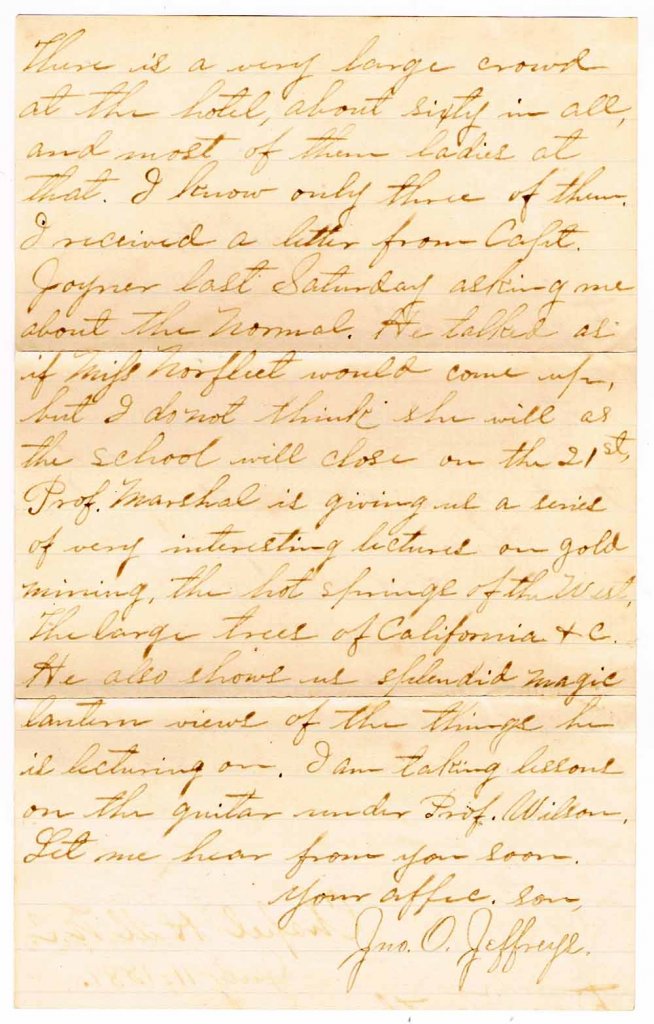 There is a very large crowd
at the hotel, about sixty in all,
and most of them ladies at
that. I know only three of them.
I received a letter from Capt.
Joyner last Saturday asking me
about the Normal. He talked as
if Miss Norfleet would come up,
but I do not think she will as
the school will close on the 21st,
Prof. Marshal is giving us a series
of very interesting lectures on gold
mining, the hot springs of the West,
the large trees of California & C.
He also shows us splendid magic
lantern views of the things he
is lecturing on. I am taking lessons
on the guitar under Prof. Wilson.
Let me hear from you soon.
Your affec. son,
Jno. O. Jeffreys.